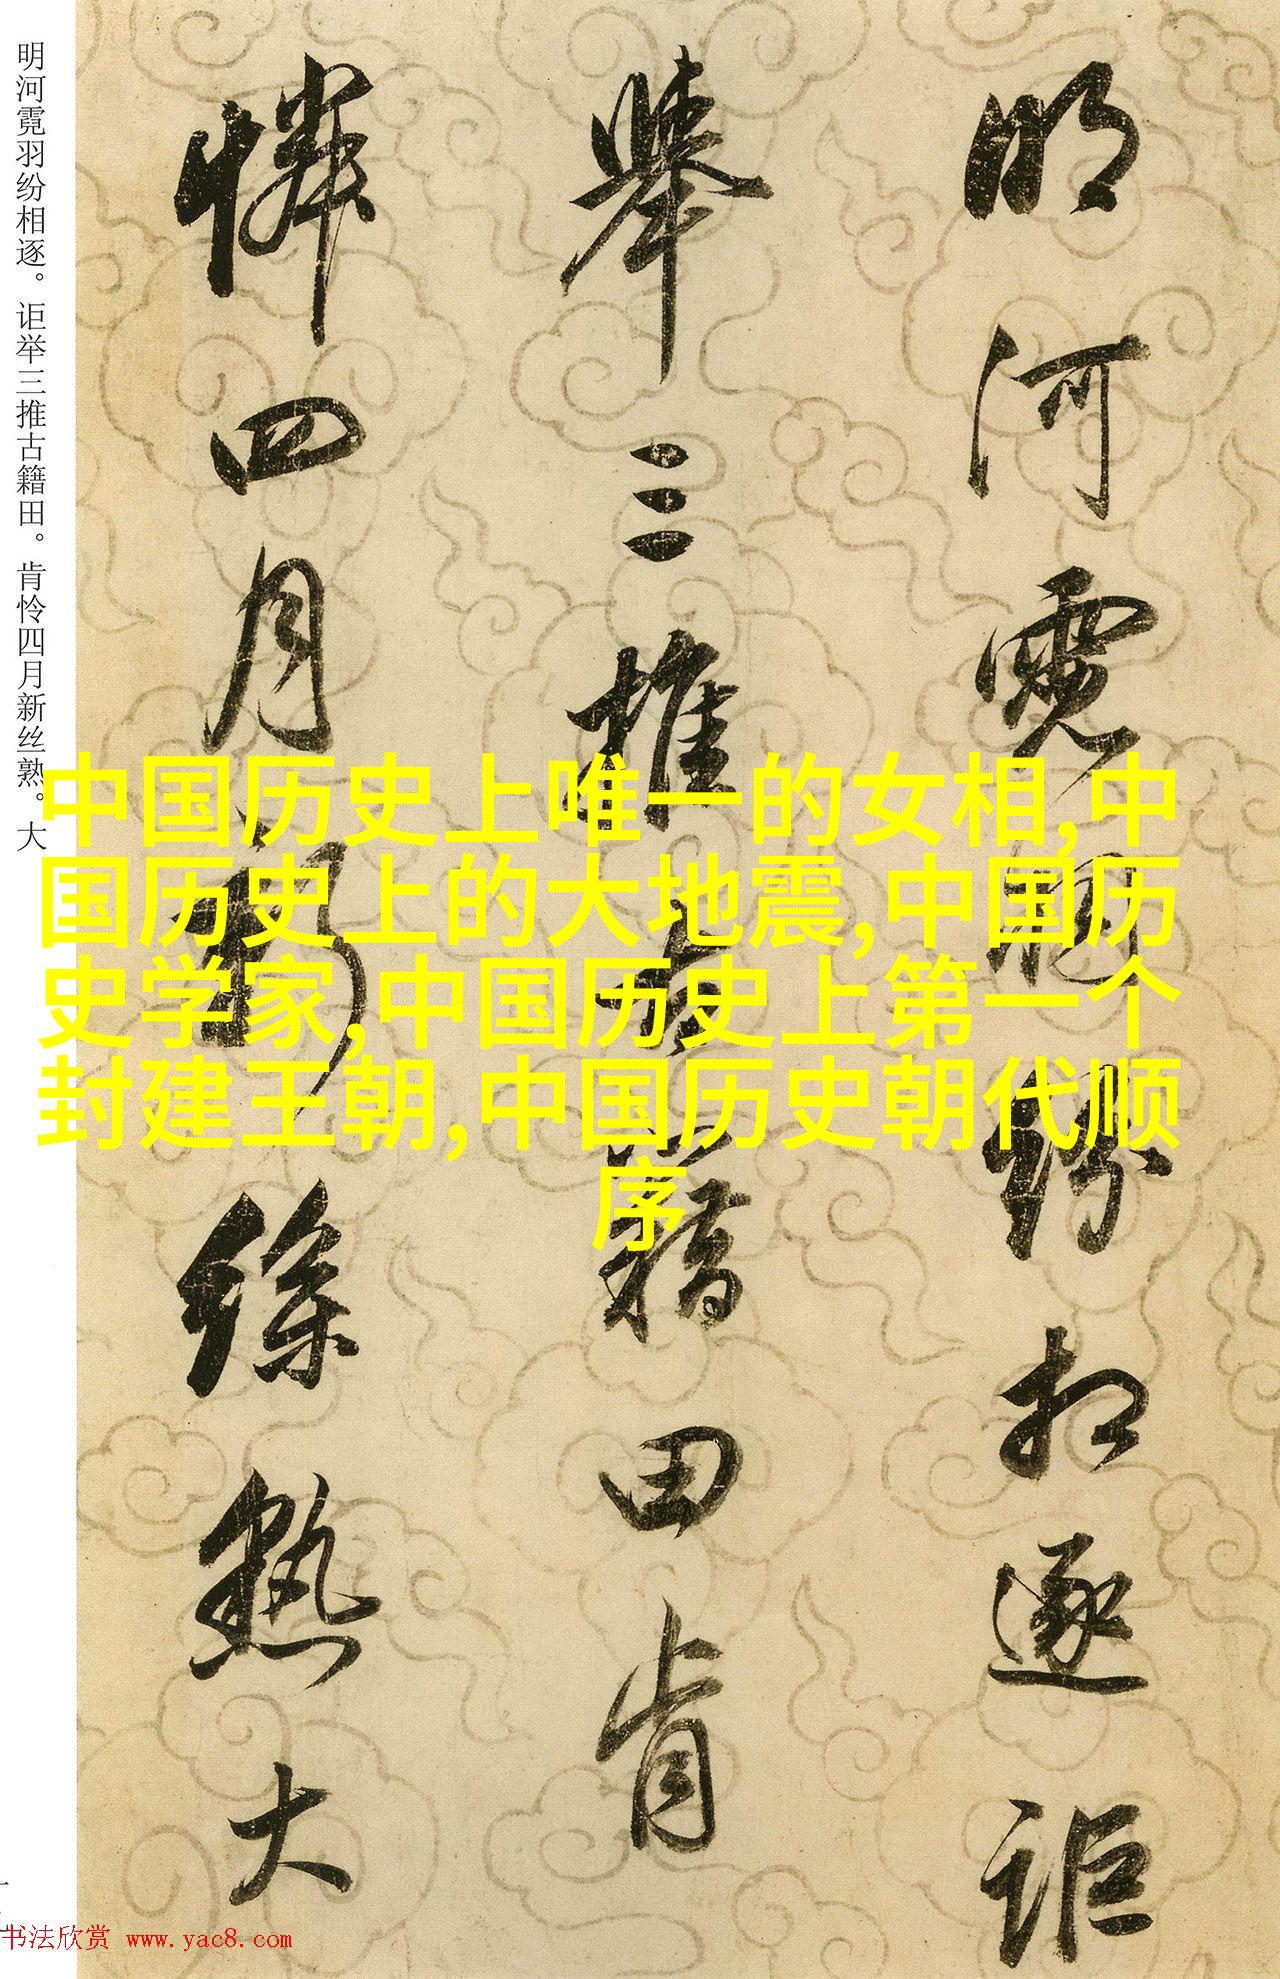 明河霓羽纷相逐。讵举三推古籍田。肯怜四月新丝熟。大
明河霓羽紛相逐詎
舉三推古籍田肯
憐四月新絲熟大
中国历史上唯一的女相,中
国历史上的大地震,中国历
史学家,中国历史上第一个
封建王朝,中国历史朝代顺
序
书法欣赏 www.yac8.com